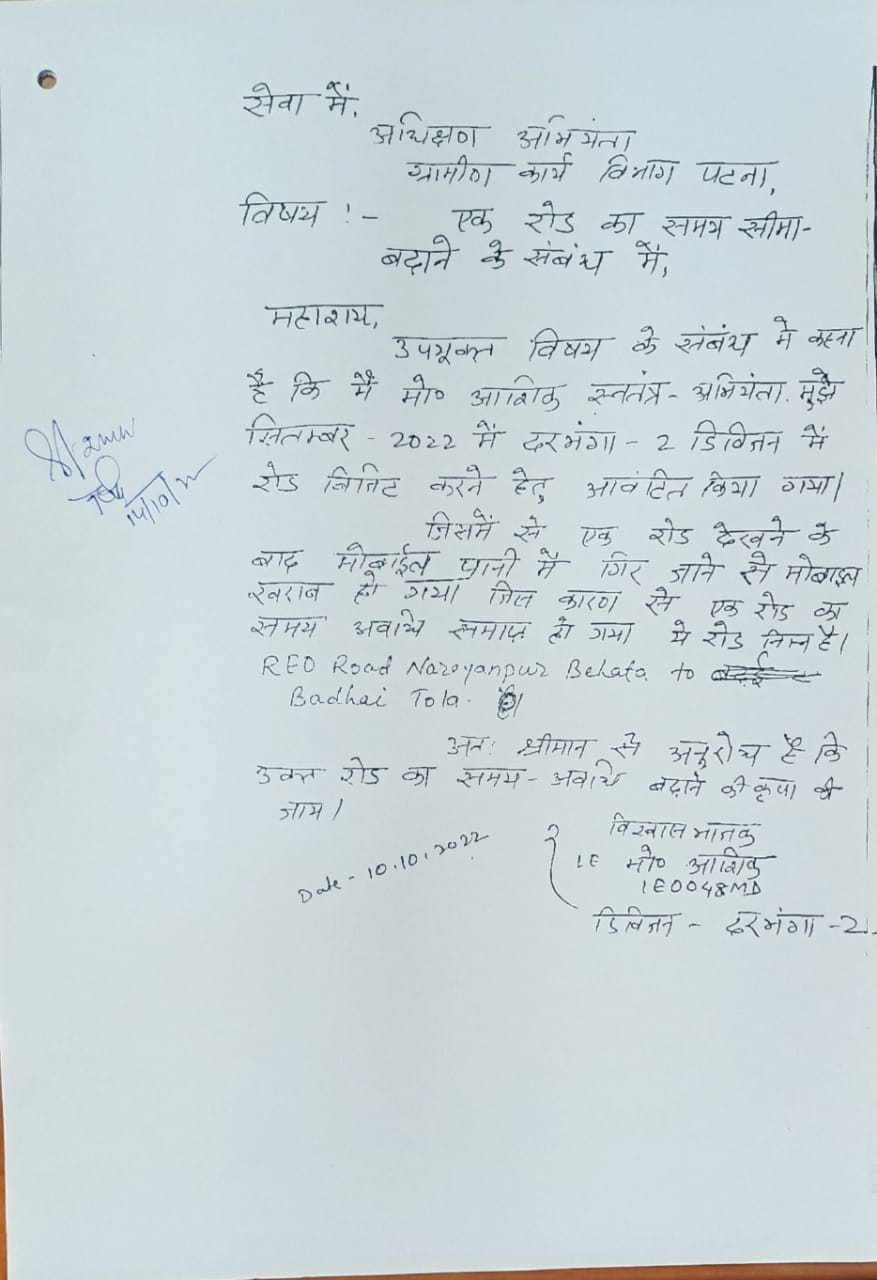 सेवा में,
अधिक्षण अभियंता
ग्रामीण कार्य विभाग पटना,
विषय :- एक रोड का समय सीमा-
बढ़ाने के संबंध में,
महाशय,
उपयूक्त विषय के संबंध मे कहना
है कि मैं मो० आशिक स्वतंत्र-अभियंता. मुझे
सितम्बर - 2022 में दरभंगा - 2 डिविजन में
रोड विजिट करने हेतु आवंटित किया गया।
जिसमें से एक रोड देखने के
बाद मोबाईल पानी में गिर जाने से मोबाइल
खराब हो गया जिस कारण से एक रोड का
समय अवधि समाप्त हो गया ये रोड निम्न है।
REO Road Narayanpur Behata to
Badhai Tola.
अतः श्रीमान से अनुरोध है कि
उक्त रोड का समय-अवधि बढ़ाने की कृपा की
जाय।
विश्वास भाजक
IE मो० आशिक
IE0048MD
डिविजन - दरभंगा - 2.
Date - 10.10.2022
14/10/22